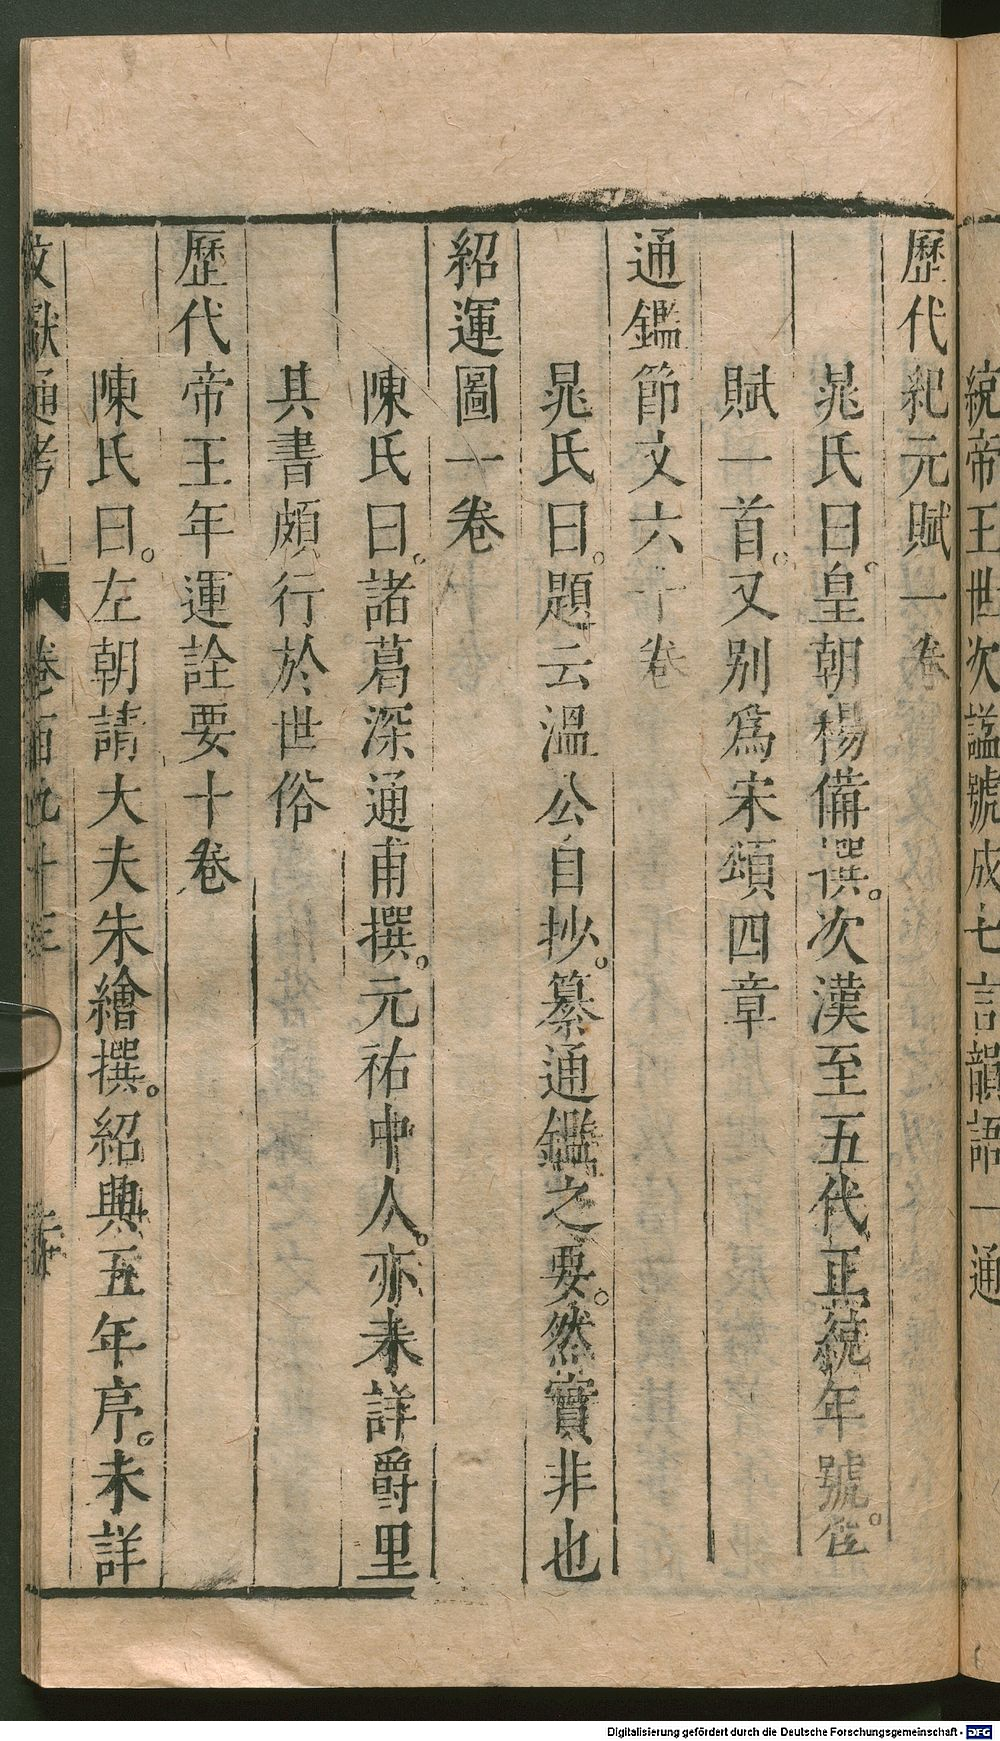 統帝王世次諡號成七言韻語一通
歷代紀元賦一卷
晁氏曰。皇朝楊備撰。次漢至五代正統年號。爲
賦一首。又别爲宋頌四章
通鑑節文六十卷
晁氏曰。題云溫公自抄。纂通鑑之要。然實非也
紹運圖一卷
陳氏曰。諸葛深通甫撰。元祐中人。亦未詳爵里
其書頗行於世俗
歷代帝王年運詮要十卷
陳氏曰。左朝請大夫朱繪撰。紹興五年序。未詳
文獻通考 卷百九十三
Digitalisierung gefördert durch die Deutsche Forschungsgemeinschaft - DFG